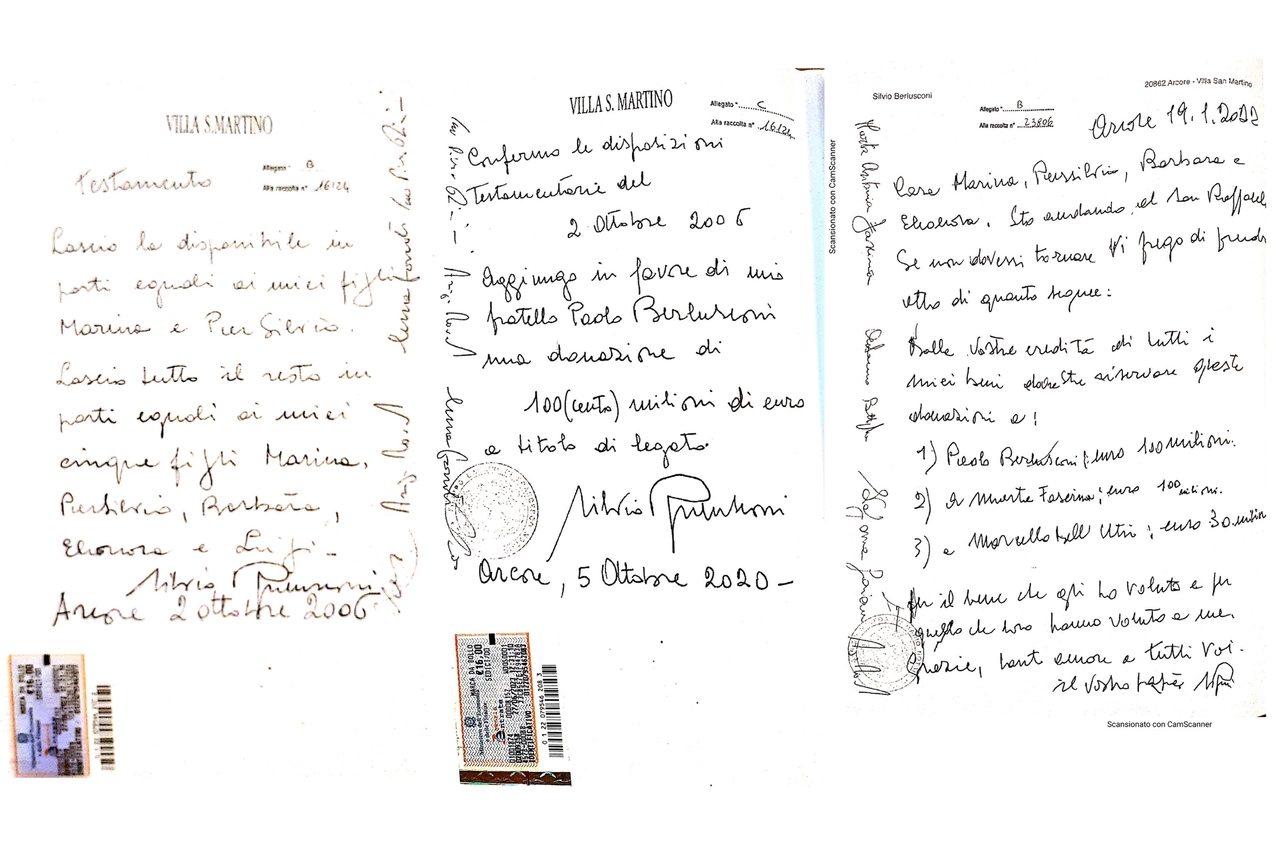 VILLA S. MARTINO
Allegato " B
Alla raccolta n° 16124
Testamento
Lascio la disponibile in
parti eguali ai miei figli
Marina e Pier Silvio.
Lascio tutto il resto in
parti eguali ai miei
cinque figli Marina,
PierSilvio, Barbara,
Eleonora e Luigi -
Silvio Berlusconi
Arcore 2 ottobre 2006
MARCA DA BOLLO
€16,00
VILLA S. MARTINO
Allegato " C
Alla raccolta n° 16124
Confermo le disposizioni
Testamentarie del
2 Ottobre 2006
Aggiungo in favore di mio
fratello Paolo Berlusconi
una donazione di
100 (cento) milioni di euro
a titolo di legato.
Silvio Berlusconi
Arcore, 5 Ottobre 2020 -
MARCA DA BOLLO
€16,00
0 1 22 079546 208 3
Scansionato con CamScanner
Silvio Berlusconi
20862 Arcore - Villa San Martino
Allegato " B
Alla raccolta n° 23806
Arcore 19.1.2022
Cara Marina, Piersilvio, Barbara e
Eleonora, Sto andando al San Raffaele
Se non dovessi tornare Vi prego di prend
atto di quanto segue:
Dalla vostra eredità di tutti i
miei beni dovreste riservare queste
donazioni a:
1) Paolo Berlusconi: euro 100 milioni.
2) a Marta Fascina; euro 100 milioni.
3) a Marcello Dell Utri; euro 30 milion
per il bene che gli ho voluto e per
quello che loro hanno voluto a me.
Grazie, tanto amore a tutti Voi.
il Vostro papà
Scansionato con CamScanner